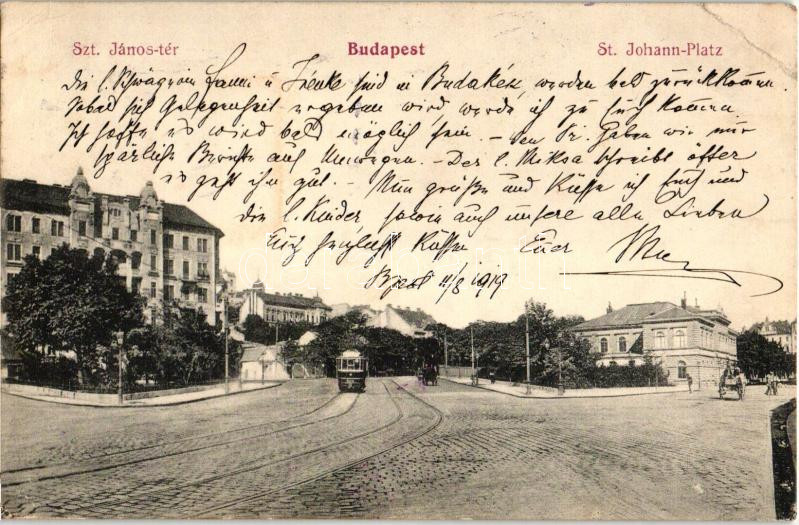 Szt. János-tér Budapest St. Johann-Platz
Die l. Schwägerin Fanni u sind in Budakész, werden bald zurückkommen.
Sobald sich Gelegenheit ergeben wird, werde ich zu Euch kommen
Ich hoffe es wird bald möglich sein. – haben wir nur
spärliche Berichte auf Umwegen. – Der l. Miksa schreibt öfter
es geht ihm gut. – Nun grüße und Küsse ich Euch und
die l. Kinder, sowie auch unsere alle Lieben
Euch herzlichst Küssen Euer
Bpest 11/8 1919